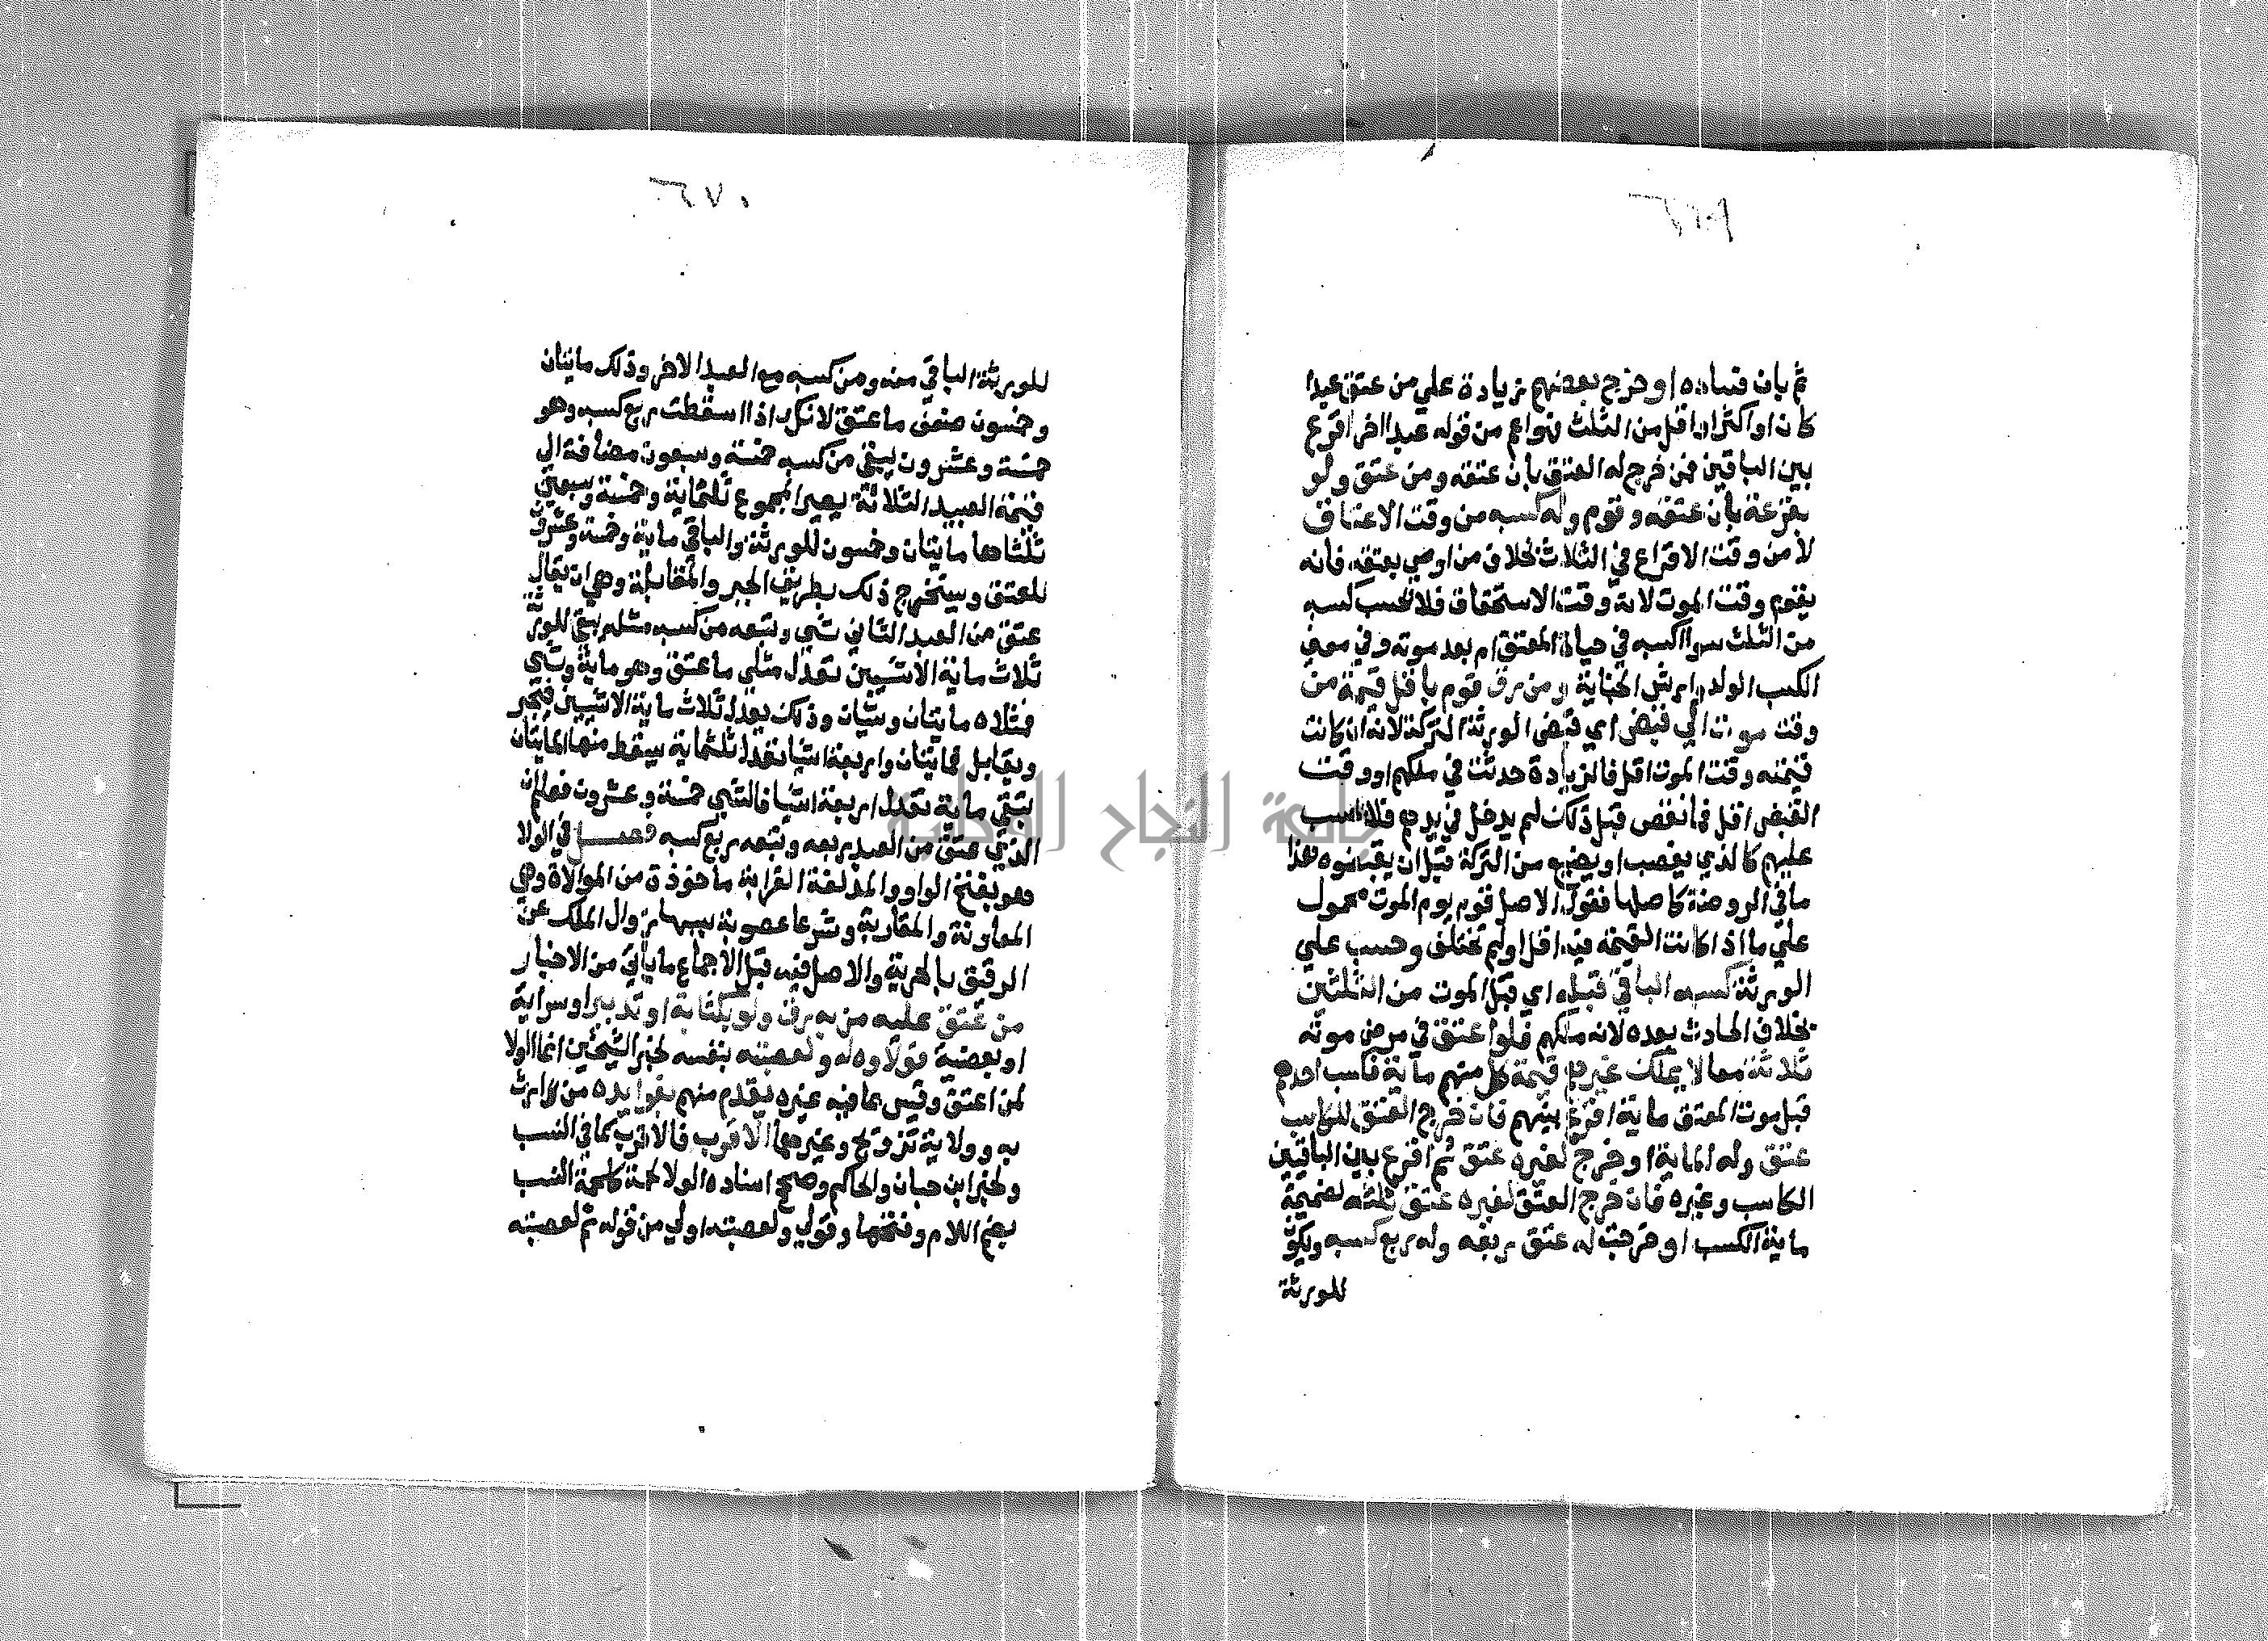 ثم بان فساده او خرج بعضهم زيادة علي من عتق عبدا
كان او اكثر او اقل من الثلث فهو اعم من قوله عبدا اخر اقرع
بين الباقين فمن خرج له العتق بان عتقه ومن عتق ولو
بقرعة بان عتقه وقوم وله كسبه من وقت الاعتاق
لا من وقت الاقراع في الثلاث بخلاف من اوصي بعتقه فانه
يقوم وقت الموت لانه وقت الاستحقاق فلا يحسب كسبه
من الثلث سوا كسبه في حياة المعتق ام بعد موته وفي معني
الكسب الولد وارش الجناية ومن رق قوم باقل قيمة من
وقت موت الي قبض اي قبض الورثة التركة لانه ان كانت
قيمته وقت الموت اقل فالزيادة حدثت في ملكهم او وقت
القبض اقل فما نقص قبل ذلك لم يدخل في يدهم فلا يحسب
عليهم كالذي يغصب او يضيع من التركة قبل ان يقبضوه هذا
ما في الروضة كاصلها فقول الاصل قوم يوم الموت محمول
علي ما اذا كانت القيمة فيه اقل او لم تختلف وحسب علي
الورثة كسبه الباقي قبله اي قبل الموت من الثلثين
بخلاف الحادث بعده لانه ملكهم فلو اعتق في مرض موته
ثلاثة معا لا يملك غيرهم قيمة كل منهم ماية فاكسب احدهم
قبل موت المعتق ماية اقرع بينهم فان خرج العتق للكاسب
عتق وله الماية او خرج لغيره عتق ثم اقرع بين الباقين
الكاسب وغيره فان خرج العتق لغيره عتق ثلثه لضميمة
ماية الكسب او خرجت له عتق ربعه وله ربع كسبه ويكون
للورثة
٢٧٠
للورثة الباقي منه ومن كسبه مع العبد الاخر وذلك مايتان
وخمسون ضعف ما عتق لانك اذا اسقطت ربع كسبه وهو
خمسة وعشرون يبقي من كسبه خمسة وسبعون مضافة الي
قيمة العبيد الثلاثة يصير المجموع ثلثماية وخمسة وسبعين
ثلثاها مايتان وخمسون للورثة والباقي ماية وخمسة وعشرون
للعتق ويستخرج ذلك بطريق الجبر والمقابلة وهي ان يقال
عتق من العبد الثاني شي وتبعه من كسبه مثله يبقي للورثة
ثلاث ماية الا شيين تعدل مثلي ما عتق وهو ماية وشي
فمثلاه مايتان وشيان وذلك يعدل ثلاث ماية الا شيين فتجبر
وتقابل فمايتان واربعة اشيا تعدل ثلثماية يسقط منها المايتان
يبقي ماية تعدل اربعة اشيا فالشي خمسة وعشرون فعلم ان
الذي عتق من العبد ربعه وتبعه ربع كسبه فصل في الولا
وهو بفتح الواو والمد لغة القرابة ماخوذة من الموالاة وهي
المعاونة والمقاربة وشرعا عصوبة سببها زوال الملك عن
الرقيق بالحرية والاصل فيه قبل الاجماع ما ياتي من الاخبار
من عتق عليه من به رق ولو بكتابة او تدبير او سراية
او بعضه فولاوه له ولعصبته بنفسه لخبر الشيخين انما الولا
لمن اعتق وقيس بما فيه غيره يقدم منهم بفوايده من ارث
به وولاية تزويج وغيرهما الاقرب فالاقرب كما في النسب
ولخبر ابن حبان والحاكم وصحح اسناده الولا لحمة كلحمة النسب
بضم اللام وفتحها وقولي ولعصبته اولي من قوله ثم لعصبته
جامعة النجاح الوطنية